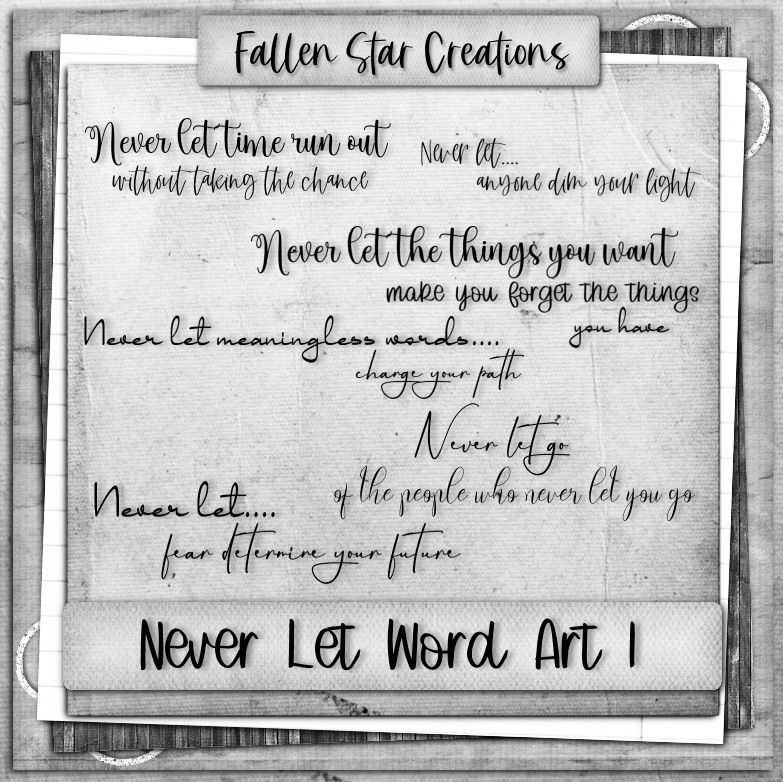 Fallen Star Creations
Never let time run out
without taking the chance
Never let....
anyone dim your light
Never let the things you want
make you forget the things
you have
Never let meaningless words....
change your path
Never let go
of the people who never let you go
Never let....
fear determine your future
Never Let Word Art 1